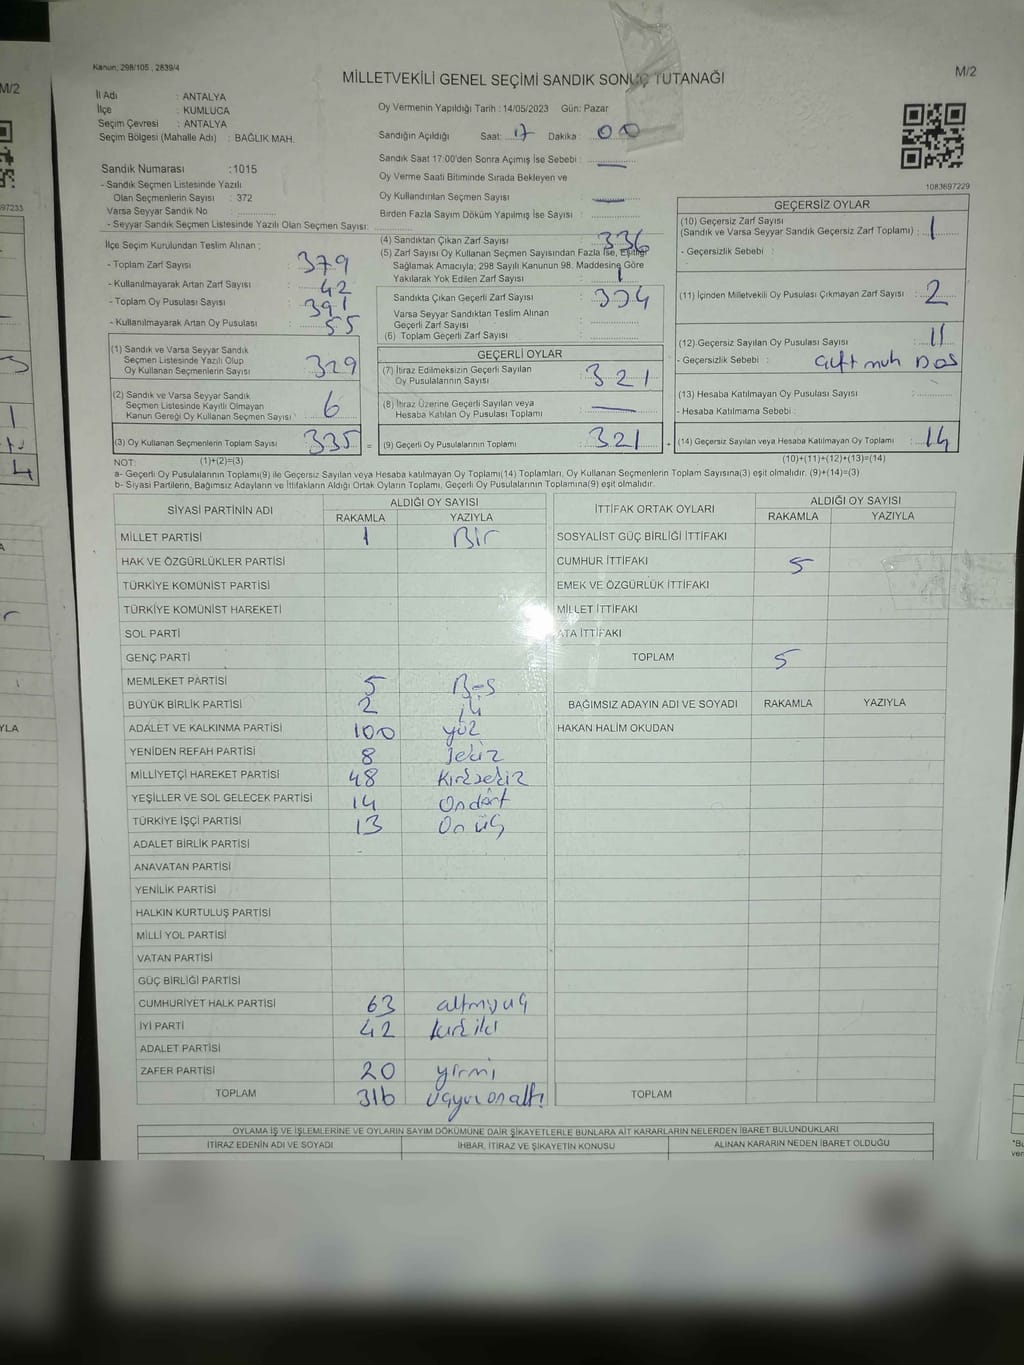 Kanun; 298/105 , 2839/4
MİLLETVEKİLİ GENEL SEÇİMİ SANDIK SONUÇ TUTANAĞI
M/2
İl Adı : ANTALYA
İlçe : KUMLUCA
Seçim Çevresi : ANTALYA
Seçim Bölgesi (Mahalle Adı) : BAĞLIK MAH.
Oy Vermenin Yapıldığı Tarih : 14/05/2023 Gün: Pazar
Sandığın Açıldığı Saat: 17 Dakika : 00
Sandık Saat 17:00'den Sonra Açımış İse Sebebi :
Oy Verme Saati Bitiminde Sırada Bekleyen ve
Oy Kullandırılan Seçmen Sayısı :
Birden Fazla Sayım Döküm Yapılmış İse Sayısı :
Sandık Numarası :1015
- Sandık Seçmen Listesinde Yazılı
Olan Seçmenlerin Sayısı : 372
Varsa Seyyar Sandık No :
- Seyyar Sandık Seçmen Listesinde Yazılı Olan Seçmen Sayısı:
1083697229
İlçe Seçim Kurulundan Teslim Alınan ;
- Toplam Zarf Sayısı : 379
- Kullanılmayarak Artan Zarf Sayısı : 42
- Toplam Oy Pusulası Sayısı : 391
- Kullanılmayarak Artan Oy Pusulası : 55
(1) Sandık ve Varsa Seyyar Sandık
Seçmen Listesinde Yazılı Olup
Oy Kullanan Seçmenlerin Sayısı : 329
(2) Sandık ve Varsa Seyyar Sandık
Seçmen Listesinde Kayıtlı Olmayan
Kanun Gereği Oy Kullanan Seçmen Sayısı : 6
(3) Oy Kullanan Seçmenlerin Toplam Sayısı : 335
(4) Sandıktan Çıkan Zarf Sayısı : 336
(5) Zarf Sayısı Oy Kullanan Seçmen Sayısından Fazla İse, Eşitliği
Sağlamak Amacıyla; 298 Sayılı Kanunun 98. Maddesine Göre
Yakılarak Yok Edilen Zarf Sayısı : 1
Sandıkta Çıkan Geçerli Zarf Sayısı : 334
Varsa Seyyar Sandıktan Teslim Alınan
Geçerli Zarf Sayısı :
(6) Toplam Geçerli Zarf Sayısı :
GEÇERLİ OYLAR
(7) İtiraz Edilmeksizin Geçerli Sayılan
Oy Pusulalarının Sayısı : 321
(8) İtiraz Üzerine Geçerli Sayılan veya
Hesaba Katılan Oy Pusulası Toplamı :
= (9) Geçerli Oy Pusulalarının Toplamı : 321
GEÇERSİZ OYLAR
(10) Geçersiz Zarf Sayısı
(Sandık ve Varsa Seyyar Sandık Geçersiz Zarf Toplamı) : 1
- Geçersizlik Sebebi :
(11) İçinden Milletvekili Oy Pusulası Çıkmayan Zarf Sayısı : 2
(12) Geçersiz Sayılan Oy Pusulası Sayısı : 11
- Geçersizlik Sebebi : çift muh Bos
(13) Hesaba Katılmayan Oy Pusulası Sayısı :
- Hesaba Katılmama Sebebi :
(14) Geçersiz Sayılan veya Hesaba Katılmayan Oy Toplamı : 14
NOT: (1)+(2)=(3)
(10)+(11)+(12)+(13)=(14)
a- Geçerli Oy Pusulalarının Toplamı(9) ile Geçersiz Sayılan veya Hesaba katılmayan Oy Toplamı(14) Toplamları, Oy Kullanan Seçmenlerin Toplam Sayısına(3) eşit olmalıdır. (9)+(14)=(3)
b- Siyasi Partilerin, Bağımsız Adayların ve İttifakların Aldığı Ortak Oyların Toplamı, Geçerli Oy Pusulalarının Toplamına(9) eşit olmalıdır.
SİYASİ PARTİNİN ADI ALDIĞI OY SAYISI
RAKAMLA YAZIYLA
MİLLET PARTİSİ 1 Bir
HAK VE ÖZGÜRLÜKLER PARTİSİ
TÜRKİYE KOMÜNİST PARTİSİ
TÜRKİYE KOMÜNİST HAREKETİ
SOL PARTİ
GENÇ PARTİ
MEMLEKET PARTİSİ 5 Beş
BÜYÜK BİRLİK PARTİSİ 2 iki
ADALET VE KALKINMA PARTİSİ 100 yüz
YENİDEN REFAH PARTİSİ 8 Sekiz
MİLLİYETÇİ HAREKET PARTİSİ 48 Kırksekiz
YEŞİLLER VE SOL GELECEK PARTİSİ 14 Ondört
TÜRKİYE İŞÇİ PARTİSİ 13 On üç
ADALET BİRLİK PARTİSİ
ANAVATAN PARTİSİ
YENİLİK PARTİSİ
HALKIN KURTULUŞ PARTİSİ
MİLLİ YOL PARTİSİ
VATAN PARTİSİ
GÜÇ BİRLİĞİ PARTİSİ
CUMHURİYET HALK PARTİSİ 63 altmışüç
İYİ PARTİ 42 kırkiki
ADALET PARTİSİ
ZAFER PARTİSİ 20 yirmi
TOPLAM 316 üçyüzonaltı
İTTİFAK ORTAK OYLARI ALDIĞI OY SAYISI
RAKAMLA YAZIYLA
SOSYALİST GÜÇ BİRLİĞİ İTTİFAKI
CUMHUR İTTİFAKI 5
EMEK VE ÖZGÜRLÜK İTTİFAKI
MİLLET İTTİFAKI
ATA İTTİFAKI
TOPLAM 5
BAĞIMSIZ ADAYIN ADI VE SOYADI RAKAMLA YAZIYLA
HAKAN HALİM OKUDAN
TOPLAM
OYLAMA İŞ VE İŞLEMLERİNE VE OYLARIN SAYIM DÖKÜMÜNE DAİR ŞİKAYETLERLE BUNLARA AİT KARARLARIN NELERDEN İBARET BULUNDUKLARI
İTİRAZ EDENİN ADI VE SOYADI İHBAR, İTİRAZ VE ŞİKAYETİN KONUSU ALINAN KARARIN NEDEN İBARET OLDUĞU